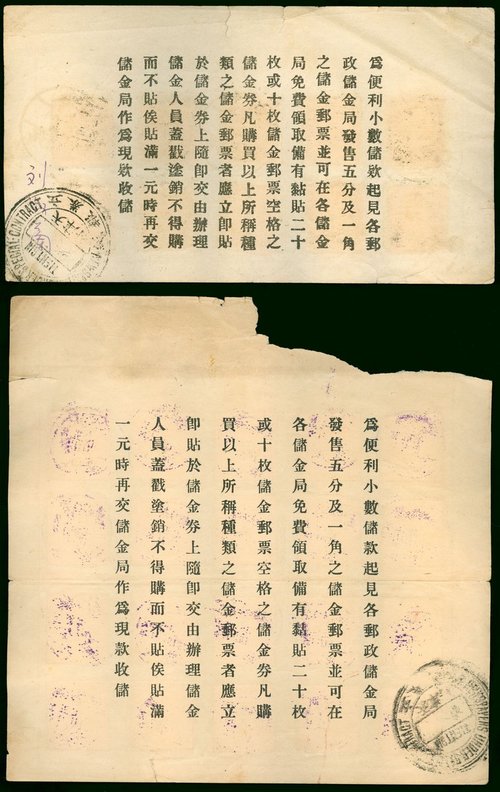 爲便利小數儲款起見各郵
政儲金局發售五分及一角
之儲金郵票並可在各儲金
局免費領取備有黏貼二十
枚或十枚儲金郵票空格之
儲金券凡購買以上所稱種
類之儲金郵票者應立卽貼
於儲金券上隨卽交由辦理
儲金人員蓋戳塗銷不得購
而不貼俟貼滿一元時再交
儲金局作爲現款收儲
刘
SPECIAL CONTRACT
爲便利小數儲款起見各郵政儲金局
發售五分及一角之儲金郵票並可在
各儲金局免費領取備有黏貼二十枚
或十枚儲金郵票空格之儲金券凡購
買以上所稱種類之儲金郵票者應立
卽貼於儲金券上隨卽交由辦理儲金
人員蓋戳塗銷不得購而不貼俟貼滿
一元時再交儲金局作爲現款收儲
UNDER